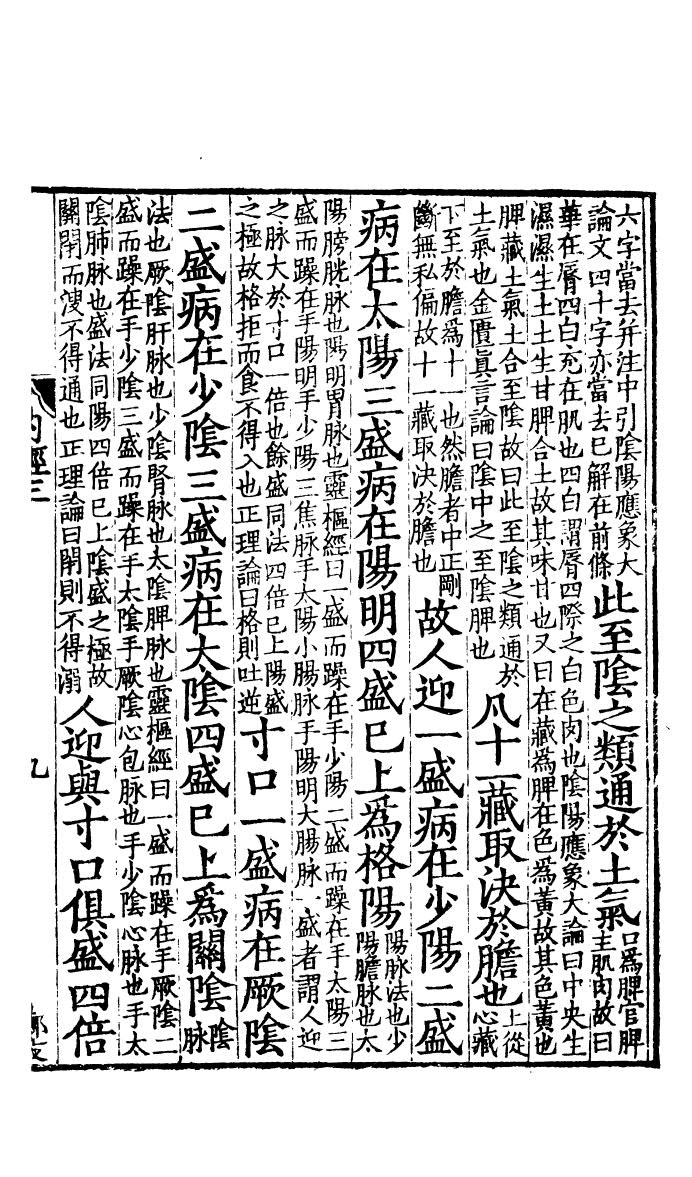 六字當去并注中引陰陽應象大
論文四十字亦當去已解在前條
此至陰之類通於土氣
口爲脾官脾
主肌肉故曰
華在脣四白充在肌也四白謂脣四際之白色肉也陰陽應象大論曰中央生
濕濕生土土生甘脾合土故其味甘也又曰在藏爲脾在色爲黃故其色黃也
脾藏土氣土合至陰故曰此至陰之類通於
土氣也金匱眞言論曰陰中之至陰脾也
凡十一藏取決於膽也
上從
心藏
下至於膽爲十一也然膽者中正剛
斷無私偏故十一藏取決於膽也
故人迎一盛病在少陽二盛
病在太陽三盛病在陽明四盛已上爲格陽
陽脉法也少
陽膽脉也太
陽膀胱脉也陽明胃脉也靈樞經曰一盛而躁在手少陽二盛而躁在手太陽三
盛而躁在手陽明手少陽三焦脉手太陽小腸脉手陽明大腸脉一盛者謂人迎
之脉大於寸口一倍也餘盛同法四倍已上陽盛
之極故格拒而食不得入也正理論曰格則吐逆
寸口一盛病在厥陰
二盛病在少陰三盛病在太陰四盛已上爲關陰
陰
脉
法也厥陰肝脉也少陰腎脉也太陰脾脉也靈樞經曰一盛而躁在手厥陰二
盛而躁在手少陰三盛而躁在手太陰手厥陰心包脉也手少陰心脉也手太
陰肺脉也盛法同陽四倍已上陰盛之極故
關閉而溲不得通也正理論曰閉則不得溺
人迎與寸口俱盛四倍
內經三
九